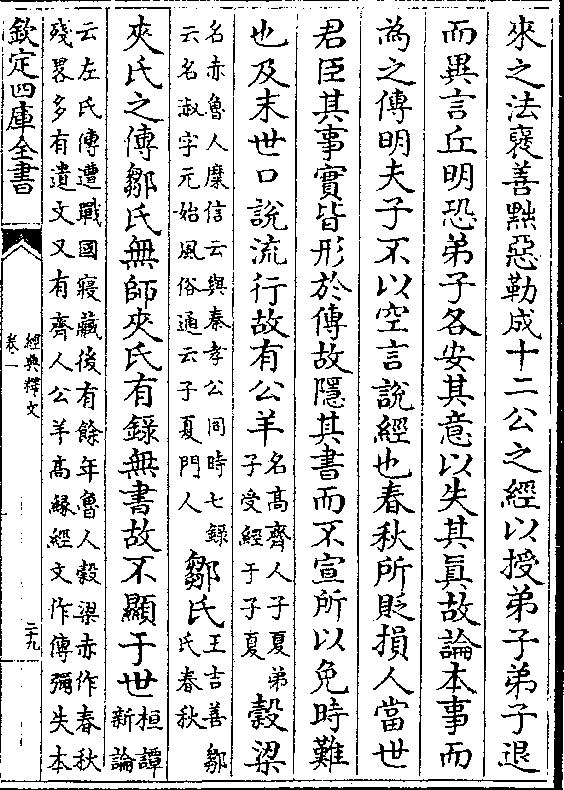 來之法褒善黜惡勒成十二公之經以授弟子弟子退
而異言丘明恐弟子各安其意以失其眞故論本事而
為之傳明夫子不以空言說經也春秋所貶損人當世
君臣其事實皆形於傳故隱其書而不宣所以免時難
也及末世口說流行故有公羊名髙齊人子夏弟子受經于子夏穀梁
名赤魯人糜信云與秦孝公同時七録云名淑字元始風俗通云子夏門人鄒氏王吉善鄒氏春秋
夾氏之傳鄒氏無師夾氏有錄無書故不顯于世桓譚新論
云左氏傳遭戰國寢藏後有餘年魯人穀梁赤作春秋
殘畧多有遺文又有齊人公羊髙緣經文作傳彌失本
欽定四庫全書
經典釋文
卷一
二十九